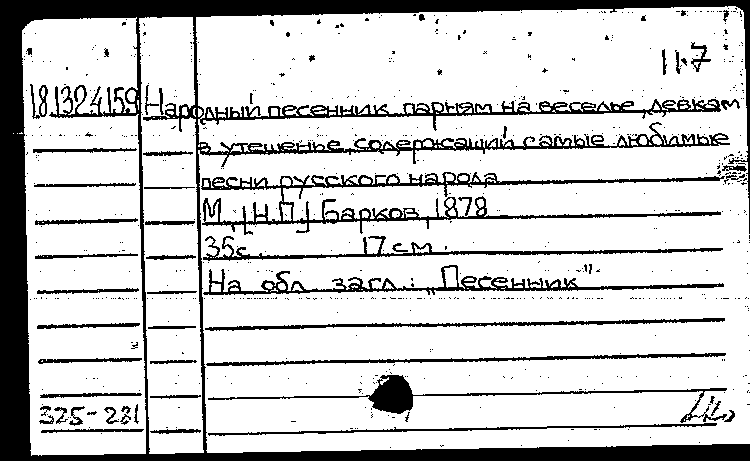 11.7
18.132.4.159 Народный песенник парням на веселье, девкам
в утешенье, содержащий самые любимые
песни русского народа
М., [Н.П.] Барков, 1878
35с. 17 см.
На обл. загл.: „Песенник".
325-281